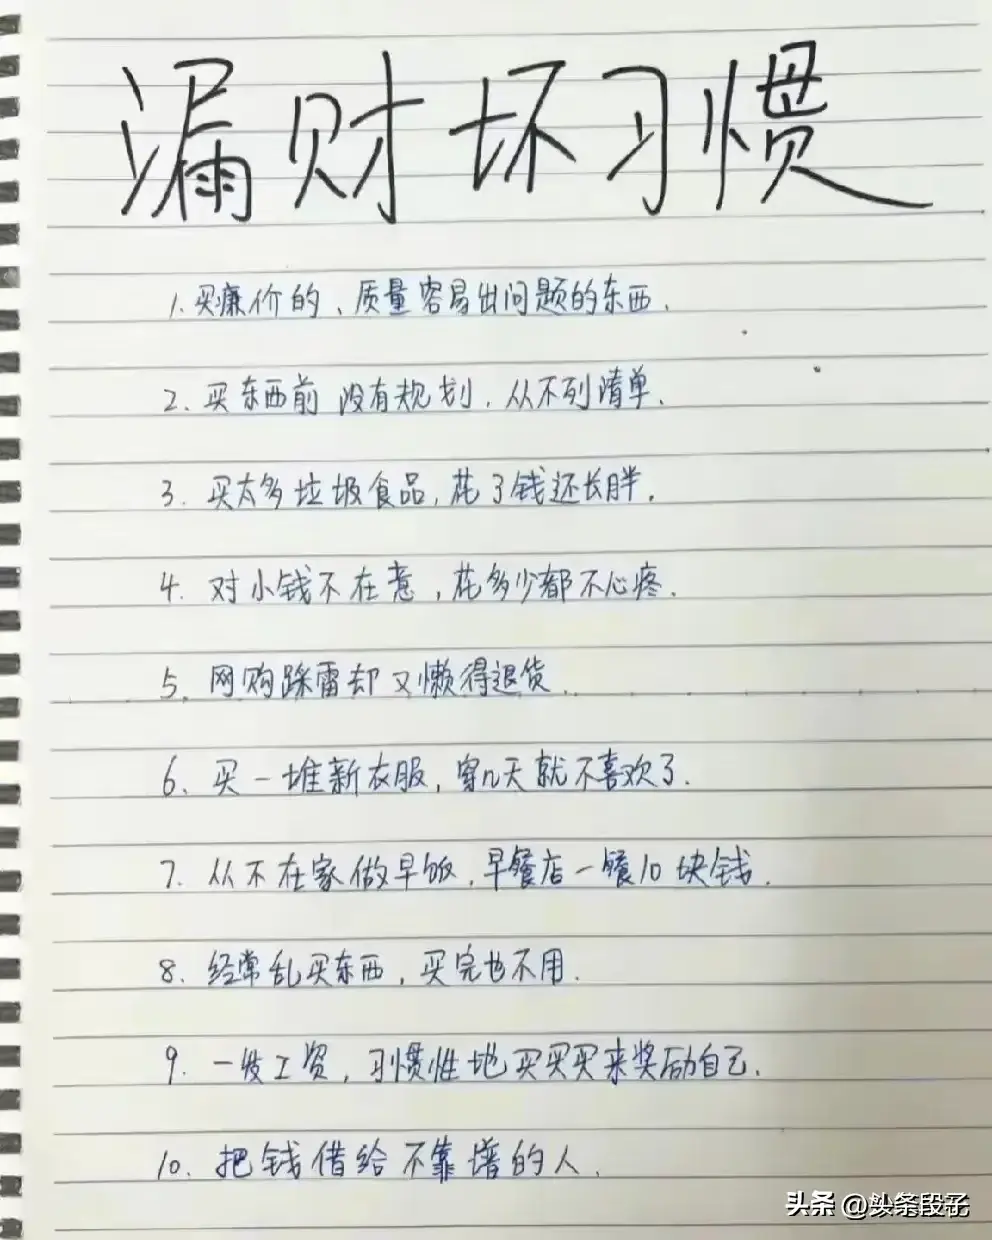 漏财坏习惯
1.买廉价的、质量容易出问题的东西.
2.买东西前没有规划.从不列清单.
3.买太多垃圾食品,花了钱还长胖.
4.对小钱不在意,花多少都不心疼.
5.网购踩雷却又懒得退货.
6.买一堆新衣服,穿几天就不喜欢了.
7.从不在家做早饭,早餐店一餐10块钱.
8.经常乱买东西,买完也不用.
9.一发工资,习惯性地买买买来奖励自己.
10.把钱借给不靠谱的人.
头条 @头条段子